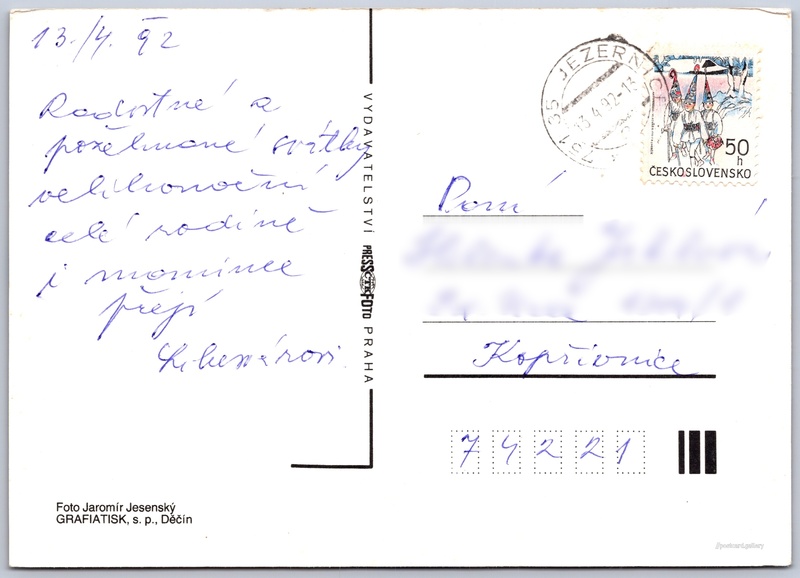 13./4. 92
Radostné a
požehnané svátky
velikonoční
celé rodině
i mamince
přejí
VYDAVATELSTVÍ PRESSFOTO PRAHA
ČTK
79135 JEZERNICE
13.4.92-13
50
h
ČESKOSLOVENSKO
Paní
Kopřivnice
74221
Foto Jaromír Jesenský
GRAFIATISK, s. p., Děčín
//postcard.gallery